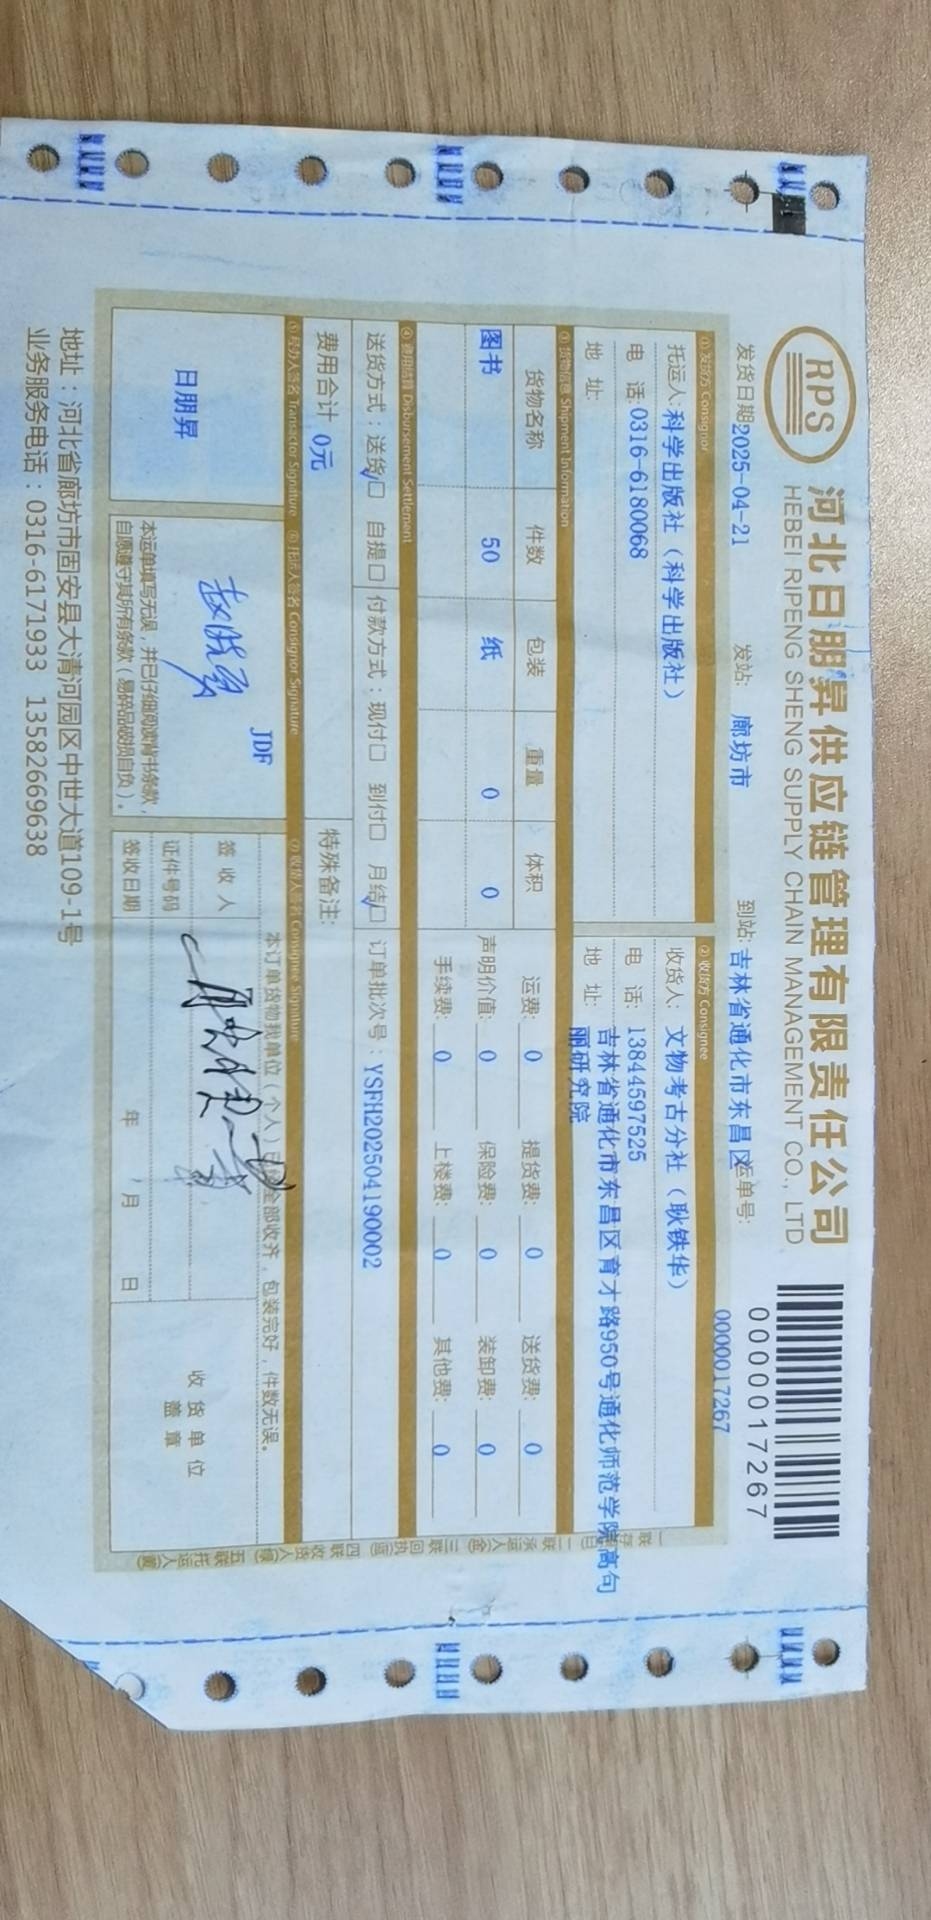 RPS
河北日朋昇供应链管理有限责任公司
HEBEI RIPENG SHENG SUPPLY CHAIN MANAGEMENT CO., LTD
0000017267
发货日期2025-04-21 发站: 廊坊市 到站: 吉林省通化市东昌区 运单号: 0000017267
① 发货方 Consignor
托运人: 科学出版社（科学出版社）
电 话: 0316-6180068
地 址:
② 收货方 Consignee
收货人: 文物考古分社（耿铁华）
电 话: 13844597525
地 址: 吉林省通化市东昌区育才路950号通化师范学院高句
丽研究院
③ 货物信息 Shipment Information
货物名称 件数 包装 重量 体积
图书 50 纸 0 0
运费: 0 提货费: 0 送货费: 0
声明价值: 0 保险费: 0 装卸费: 0
手续费: 0 上楼费: 0 其他费: 0
④ 费用结算 Disbursement Settlement
送货方式：送货☑ 自提□ 付款方式：现付□ 到付□ 月结☑ 订单批次号：YSFH202504190002
费用合计 0元 特殊备注：
⑤ 经办人签名 Transactor Signature
日朋昇
⑥ 托运人签名 Consignor Signature
JDF
本运单填写无误，并已仔细阅读背书条款，
自愿遵守其所有条款（易碎品破损自负）。
⑦ 收货人签名 Consignee Signature
本订单货物我单位（个人）已经全部收齐，包装完好，件数无误。
签 收 人
证件号码
签收日期 年 月 日
收 货 单 位
盖 章
一联存根(白) 二联承运人(金) 三联回执(蓝) 四联收货人(绿) 五联托运人(黄)
地址：河北省廊坊市固安县大清河园区中世大道109-1号
业务服务电话：0316-6171933 13582669638